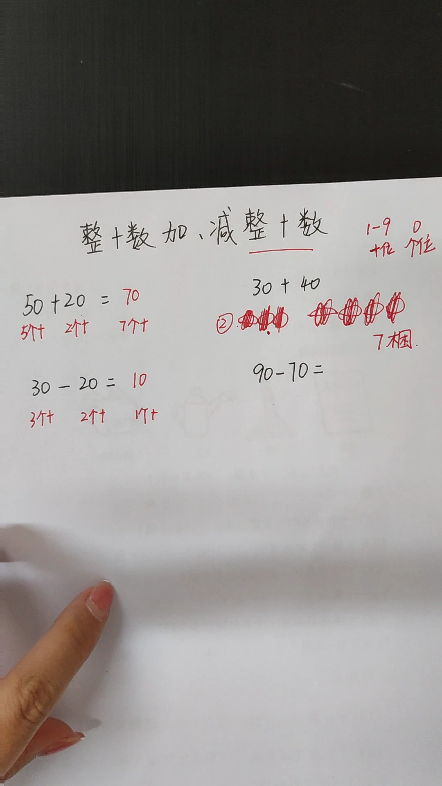 整十数加、减整十数
1-9 0
十位 个位
50+20=70
5个十 2个十 7个十
30+40
②
7捆.
30-20=10
3个十 2个十 1个十
90-70=